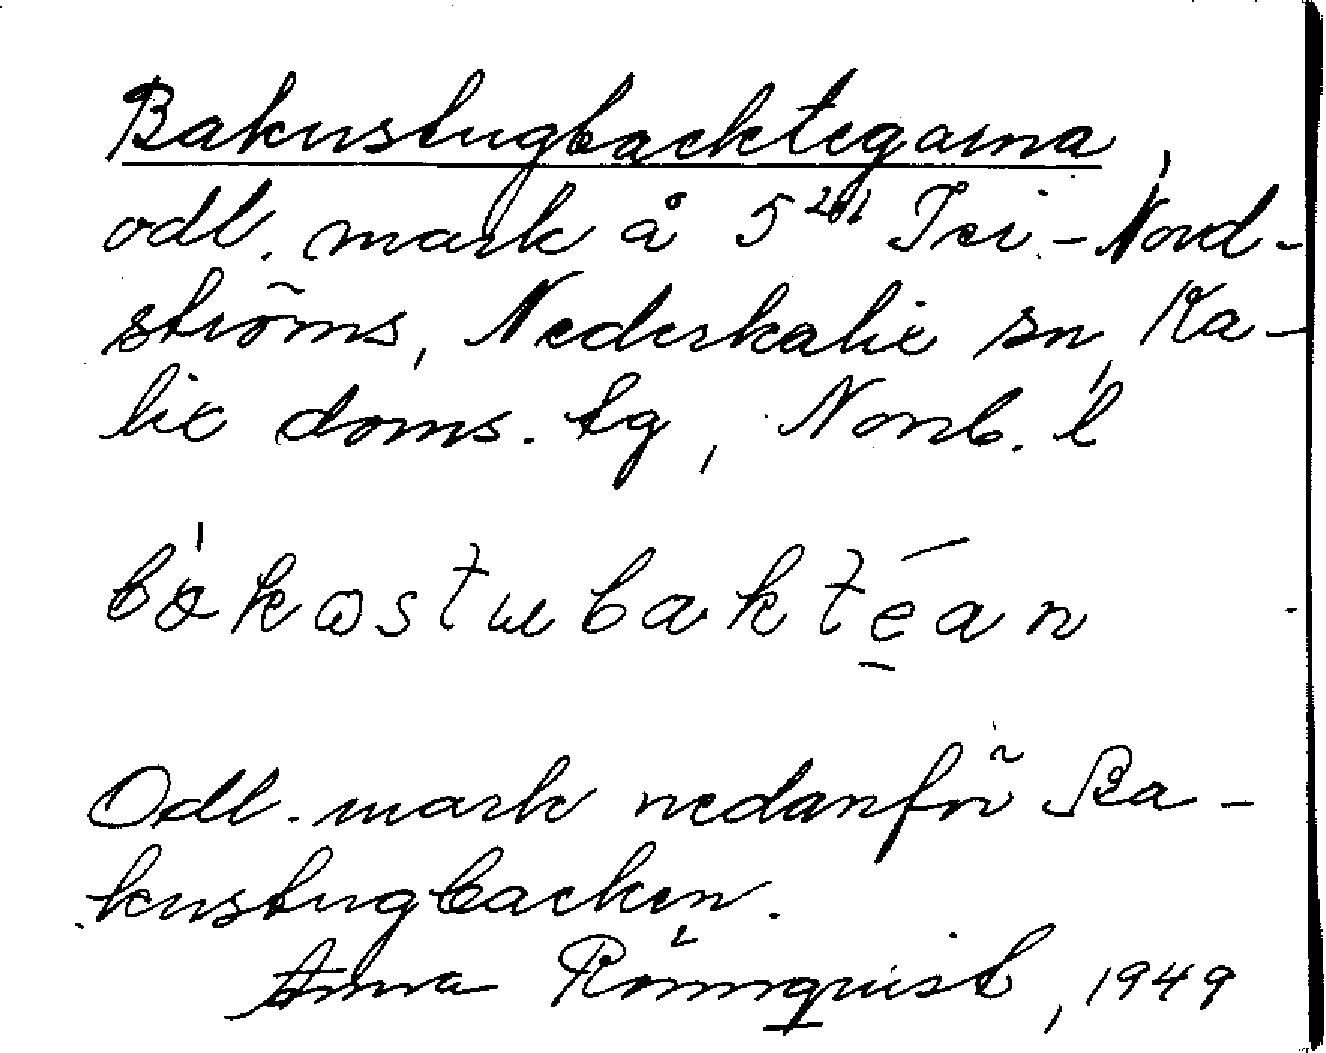 Bakustugbacktegarna,
odl. mark å 5 Tei-Nord-
ströms, Nederkalix sn, Ka-
lix doms. tg, Norrb. l
Odl. mark nedanför Ba-
kustugbacken.
Anna Rönnquist, 1949